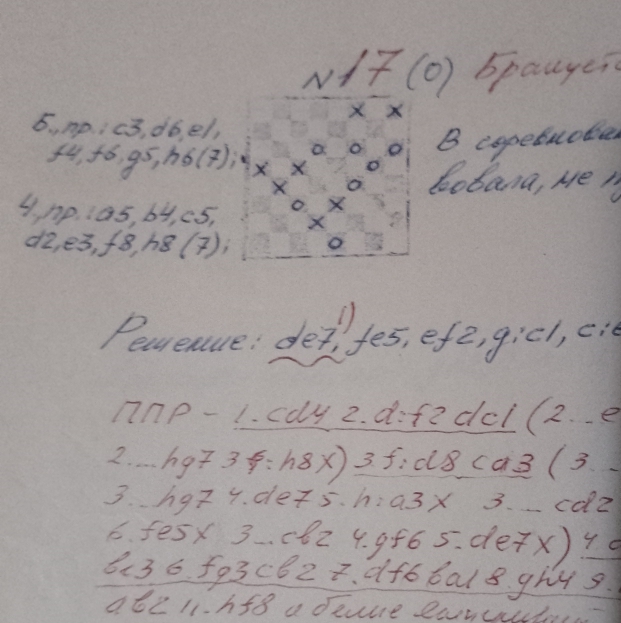 N 17 (0) Бракует
Б., пр.: c3, d6, e1,
f4, f6, g5, h6 (7);
В соревнова
вовала, не
Ч., пр.: a5, b4, c5,
d2, e3, f8, h8 (7);
Решение: de7, 1) fe5, ef2, g:c1, c:e
ППР - 1. cd4 2. d:f2 dc1 (2... e
2... hg7 3 f:h8X) 3. f:d8 ca3 (3...
3... hg7 4. de7 5. h:a3X 3... cd2
6. fe5X 3... cb2 4. gf6 5. de7X) 4.
bc3 6. fg3 cb2 7. df6 ba1 8. gh4 9.
ab2 11. hf8 а белые